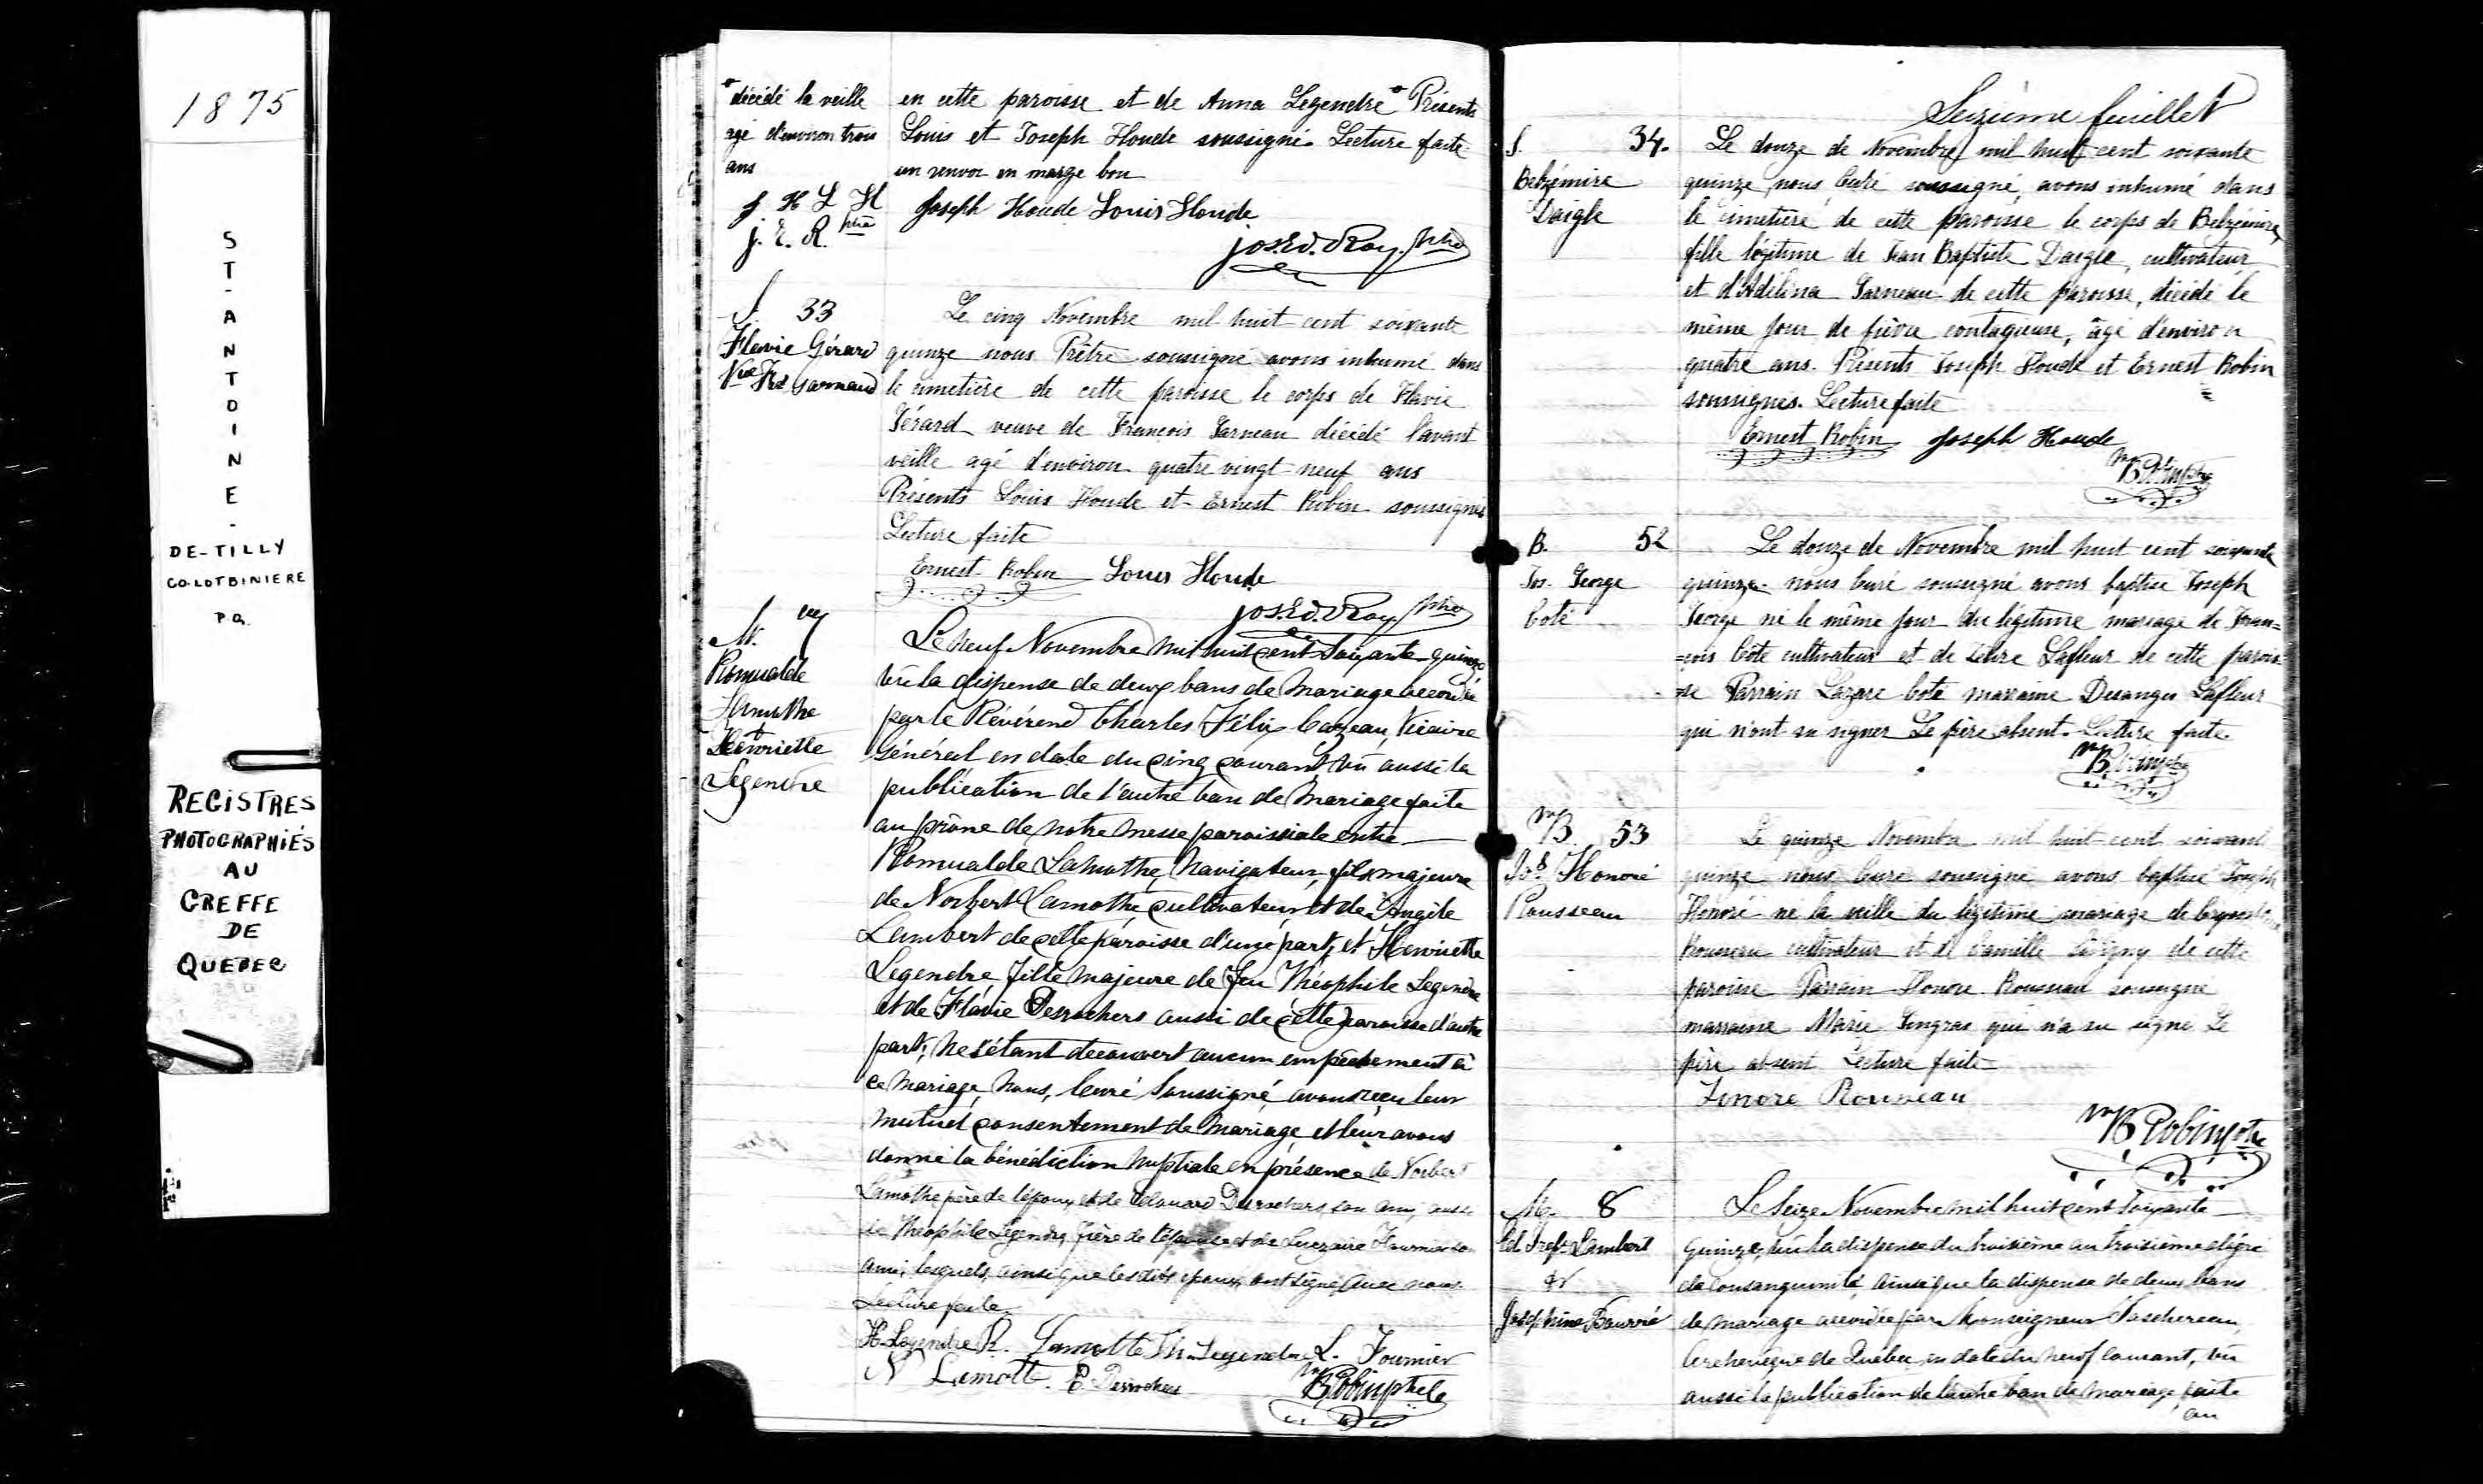 1875
ST-ANTOINE-
DE-TILLY
CO-LOTBINIERE
P.Q.
REGISTRES
PHOTOGRAPHIÉS
AU
GREFFE
DE
QUEBEC
décédé la veille
agé d'environ trois
ans
J H L H
J. E. R. ptre
en cette paroisse et de Anna Legendre Présents
Louis et Joseph Houde soussigné. Lecture faite
un renvoi en marge bon
Joseph Houde Louis Houde
Jos. Ed. Roy. Ptre
S. 33
Flavie Gérard
Vve Frs Garneau
Le cinq Novembre mil huit cent soixante
quinze nous Prêtre soussigné avons inhumé dans
le cimetière de cette paroisse le corps de Flavie
Gérard veuve de Francois Garneau décédé l'avant
veille agé d'environ quatre vingt neuf ans
Présents Louis Houde et Ernest Robin soussignés
Lecture faite
Ernest Robin Louis Houde
Jos. Ed. Roy. Ptre
M. 7
Romualde
Lamothe
&
Henriette
Legendre
Le neuf Novembre mil huit cent soixante-quinze,
vû la dispense de deux bans de mariage accordée
par le Révérend Charles Félix Cazeau, Vicaire
Général en date du cinq courant, vû aussi la
publication de l'autre ban de mariage faite
au prône de notre messe paroissiale entre
Romualde Lamothe, navigateur, fils majeure
de Norbert Lamothe, cultivateur, et de Angèle
Lambert de cette paroisse d'une part, et Henriette
Legendre fille majeure de feu Théophile Legendre
et de Flavie Desrochers aussi de cette paroisse d'autre
part; ne s'étant decouvert aucun empêchement à
ce mariage, nous, Curé soussigné, avons reçu leur
mutuel consentement de mariage, et leur avons
donné la bénédiction nuptiale en présence de Norbert
Lamothe père de l'époux, et de Edouard Desrochers, son ami, aussi
de Théophile Legendre, frère de l'épouse et de Fournier son
ami, lesquels, ainsi que les dits époux, ont signé avec nous.
Lecture faite.
H. Legendre R. Lamotte Th. Legendre L. Fournier
N Lamott E. Desrochers
M B Robin ptre
Seizième feuillet
S. 34.
Belzémire
Daigle
Le douze de Novembre mil huit cent soixante
quinze, nous Curé soussigné, avons inhumé dans
le cimetière de cette paroisse le corps de Belzémire,
fille légitime de Jean Baptiste Daigle, cultivateur
et d'Adélina Garneau de cette paroisse, décédé le
même jour de fièvre contagieuse, âgé d'environ
quatre ans. Présents Joseph Houde et Ernest Robin
soussignés. Lecture faite
Ernest Robin Joseph Houde
M B Robin ptre
B. 52
Jos. George
Coté
Le douze de Novembre mil huit cent soixante
quinze nous Curé soussigné avons baptisé Joseph
George né le même jour du légitime mariage de Fran=
=çois Côté cultivateur et de Lafleur de cette parois=
=se Parrain Lazare Coté marraine Desanges Lafleur
qui n'ont su signer. Le père absent. Lecture faite.
M B Robin ptre
B. 53
Jos Honoré
Rousseau
Le quinze Novembre mil huit cent soixante
quinze nous Curé soussigné avons baptisé Joseph
Honoré né la veille du légitime mariage de
Rousseau cultivateur et de Camille Lavigny de cette
paroisse Parrain Honoré Rousseau soussigné
marraine Marie Gingras qui n'a su signé Le
père absent Lecture faite
Honore Rousseau
M B Robin ptre
M. 8
Ed. Lambert
&
Joséphine Bourré
Le seize Novembre mil huit cent soixante
quinze, vû la dispense du troisième au troisième dégré
de consanguinité, ainsi que la dispense de deux bans
de mariage accordée par Monseigneur Taschereau,
Archevêque de Québec, en date du neuf courant, vû
aussi la publication de l'autre ban de mariage, faite
au